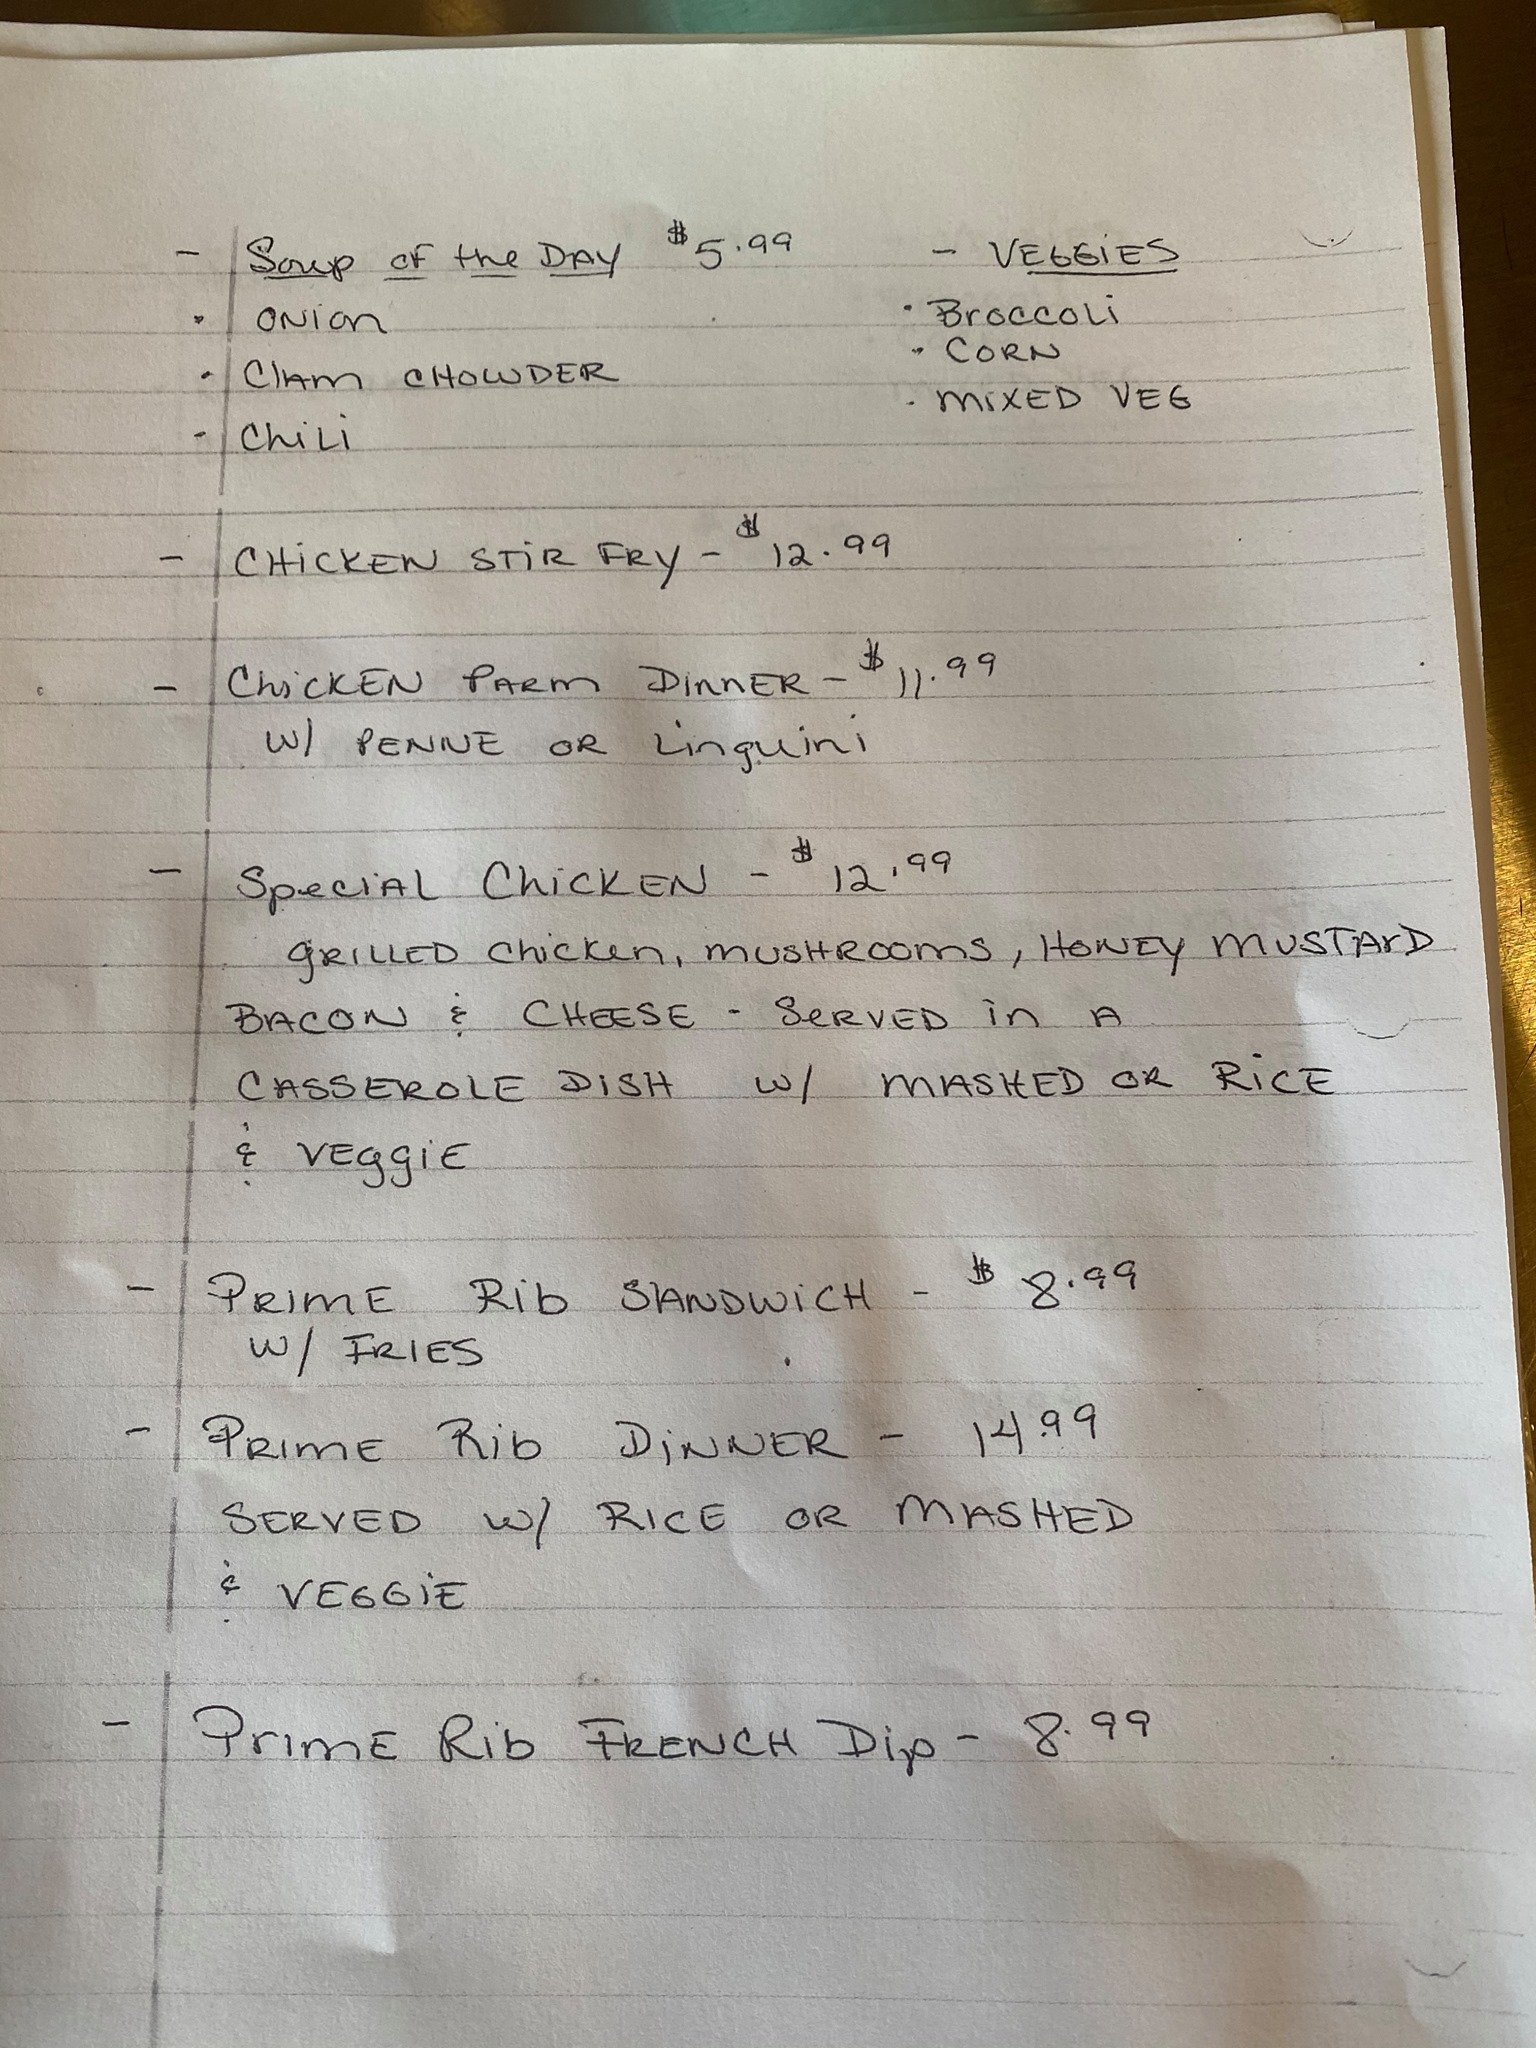 - Soup of the DAY $5.99
• ONion
• Clam CHOWDER
- ChiLi
- VEGGiES
• Broccoli
• CORN
• MiXED VEG
- CHiCKEN STiR FRY - $12.99
- ChiCKEN PARM DinnER - $11.99
W/ PENNE OR Linguini
- SpeciAL ChiCKEN - $12.99
GRILLED Chicken, MUSHROOMS, HONEY MUSTArD
BACON & CHEESE - SeRVED in A
CASSEROLE DiSH W/ MASHED OR RiCE
& VEggiE
- PRiME Rib SANDWiCH - $8.99
W/ FRIES
- PRiME Rib DiNNER - 14.99
SERVED W/ RICE OR MASHED
& VEGGiE
- PriME Rib FRENCH Dip - 8.99